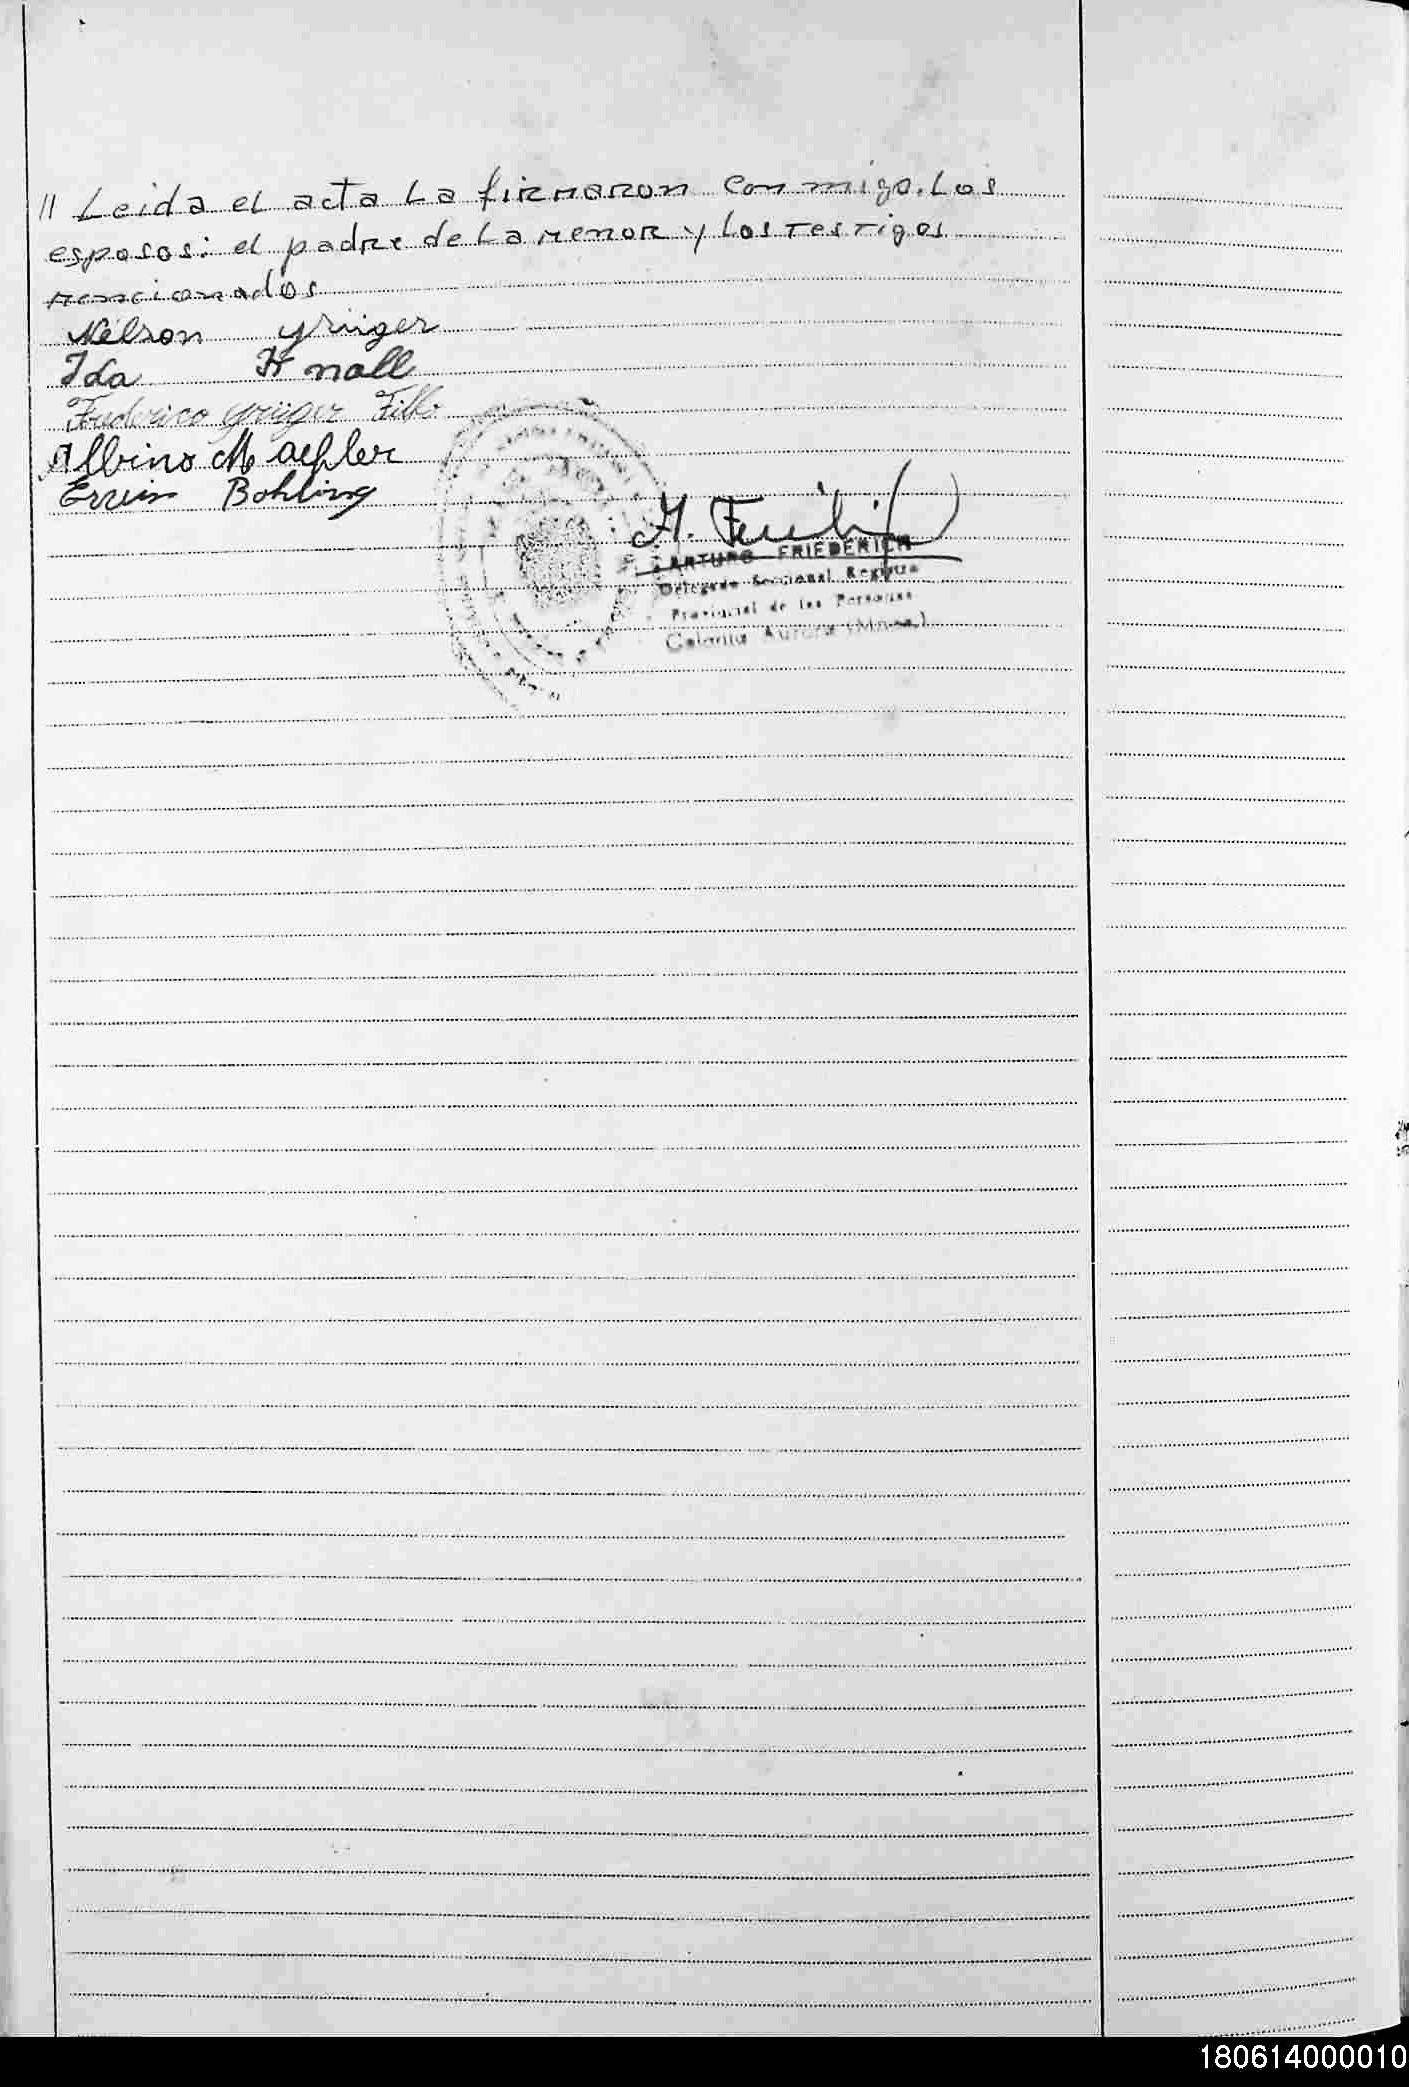 // Leida el acta la firmaron con migo. Los
esposos: el padre de la menor y los testigos
mencionados
Nélson Grüger
Ida Knall
Frederico Grüger Filho
Albino Maehler
Erwin Bohling
A. Friederich
ARTURO FRIEDERICH
Delegado Seccional Registro
Provincial de las Personas
Colonia Aurora (Mnes.)
180614000010